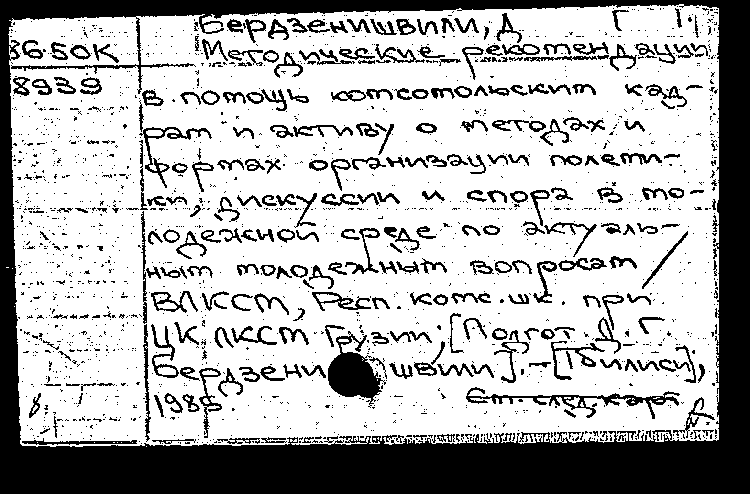 Бердзенишвили, Д Г
86-50К Методические рекомендации
8939
в помощь комсомольским кад-
рам и активу о методах и
формах организации полеми-
ки, дискуссии и спора в мо-
лодежной среде по актуаль-
ным молодежным вопросам /
ВЛКСМ, Респ. комс. шк. при
ЦК ЛКСМ Грузии; [Подгот. Д. Г.
Бердзенишвили]. – [Тбилиси],
1985. См. след. карт.